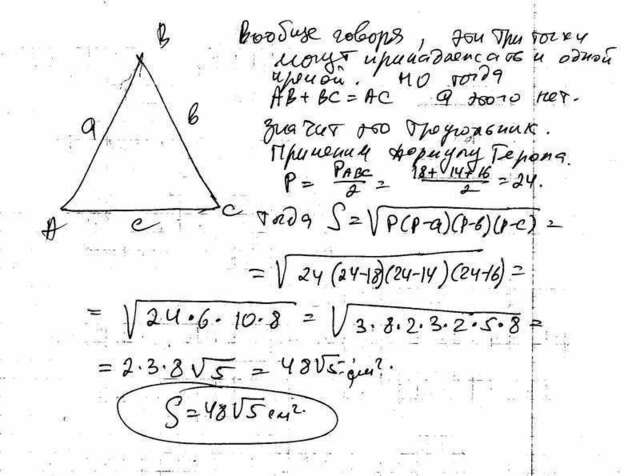 B
Вообще говоря, эти три точки
могут принадлежать и одной
прямой. но тогда
AB + BC = AC а этого нет.
a
в
значит это треугольник.
Применим формулу Герона.
P = P_ABC/2 = (18+14+16)/2 = 24.
A
c
C
тогда S = √(P(P-a)(P-в)(P-c)) =
= √(24(24-18)(24-14)(24-16)) =
= √(24·6·10·8) = √(3·8·2·3·2·5·8) =
= 2·3·8√5 = 48√5 см².
S = 48√5 см².